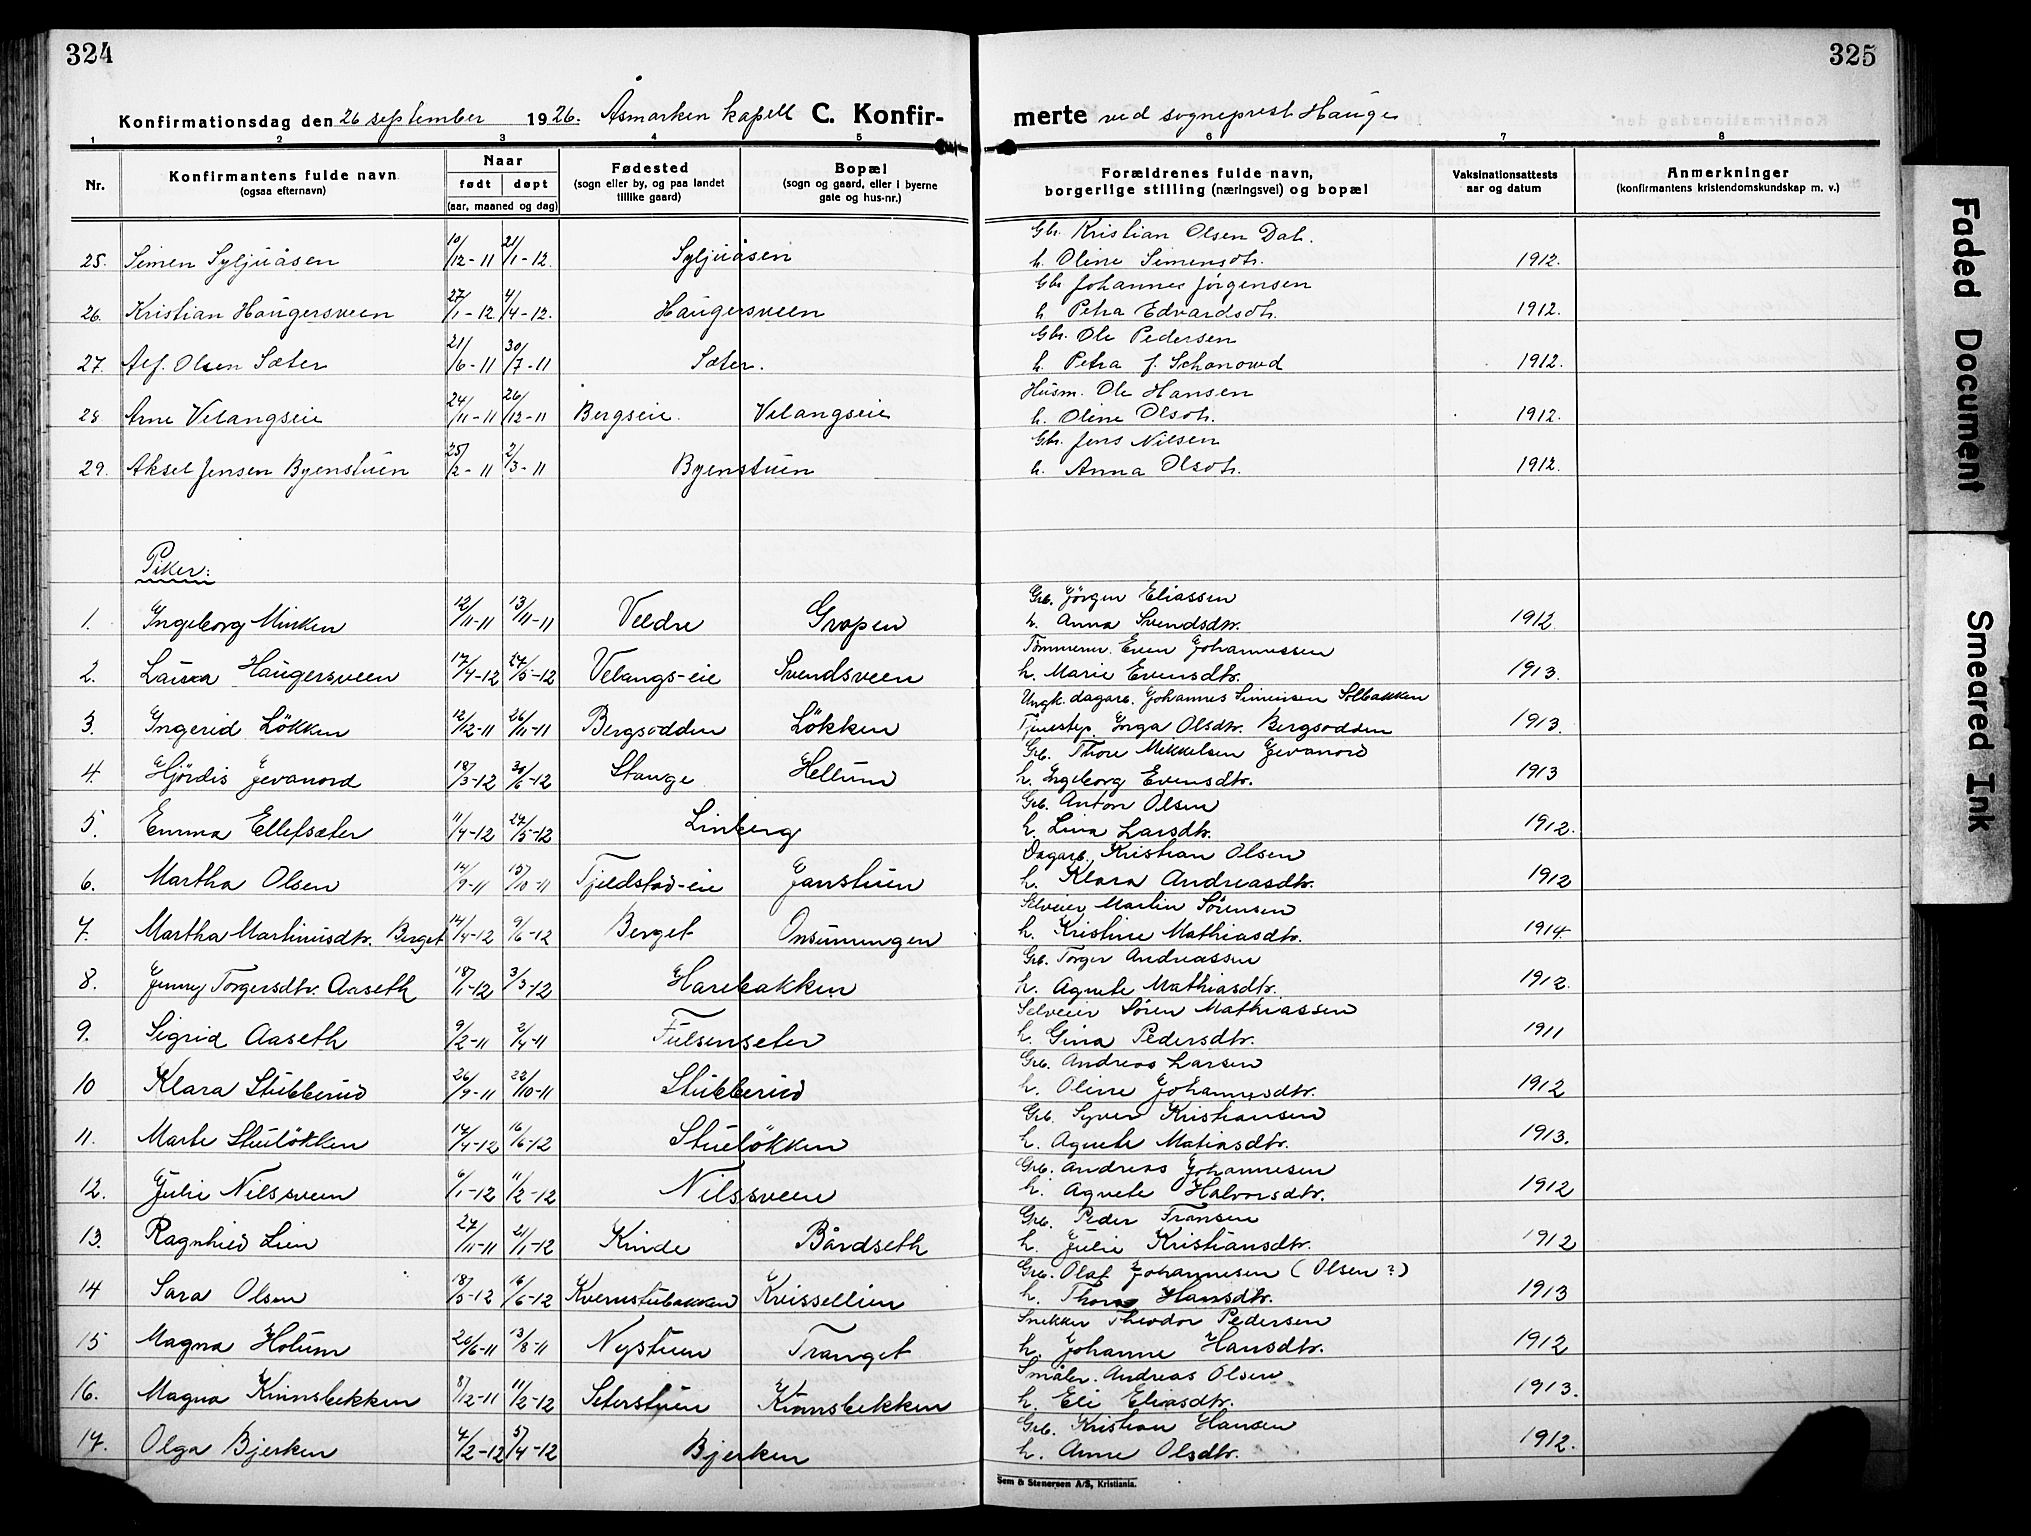 324
325
Konfirmationsdag den 26 september 1926. Åsmarken kapell C. Konfir-
merte ved sogneprest Hauge
1 2 3 4 5 6 7 8
Nr.
Konfirmantens fulde navn
(ogsaa efternavn)
Naar
født døpt
(aar, maaned og dag)
Fødested
(sogn eller by, og paa landet
tillike gaard)
Bopæl
(sogn og gaard, eller i byerne
gate og hus-nr.)
Forældrenes fulde navn,
borgerlige stilling (næringsvei) og bopæl
Vaksinationsattests
aar og datum
Anmerkninger
(konfirmantens kristendomskundskap m. v.)
Gbr. Kristian Olsen Dah.
25. Simen Syljuåsen 10/12-11 21/1-12. Syljuåsen h. Oline Simensdtr. 1912.
Gbr Johannes Jørgensen
26. Kristian Haugersveen 27/1-12 4/4-12. Haugersveen h Petra Edvardsdtr. 1912.
Gbr. Ole Pedersen
27. Alf. Olsen Sæter 21/6-11 30/7-11 Sæter. h. Petra f. 1912.
Husm. Ole Hansen
28 Arne Velangseie 24/11-11 26/12-11 Bergseie. Velangseie h. Oline Olsdtr. 1912.
Gbr. Jens Nilsen
29. Aksel Jensen Byenstuen 25/2-11 2/3-11 Byenstuen h. Anna Olsdtr. 1912.
Piker:
Grb. Jörgen Eliassen
1. Ingeborg Minken 12/11-11 13/11-11 Veldre Gropen h. Anna Svendsdtr. 1912.
Tömmerm. Even Johannessen
2. Laura Haugersveen 17/4-12 27/5-12 Velangs-eie Svendsveen h. Marie Evensdtr. 1913.
Ungk. dagarb. Johannes Simensen Solbakken
3. Ingerid Lökken 12/12-11 26/11-11 Bergsodden Lökken Tjenestep. Inga Olsdtr. Bergsodden 1913.
Grb. Thore Mikkelsen Jevanord
4. Hjördis Jevanord 18/3-12 30/6-12 Stange Hellund h. Ingeborg Evensdtr. 1913
Grb. Anton Olsen
5. Emma Ellefsæter 11/4-12 27/5-12 Linberg h. Lina Larsdtr. 1912.
Dagarb. Kristian Olsen
6. Martha Olsen 14/9-11 15/10-11 Tjeldstad-eie Janstuen h. Klara Andreasdtr. 1912
Selveier Martin Sörensen
7. Martha Martinusdtr. Berget 14/4-12 9/6-12 Berget Onsumungen h. Kristine Mathiasdtr. 1914.
Grb. Torger Andreassen
8. Jenny Torgersdtr. Aaseth 18/1-12 3/3-12 Harebakken h. Agnete Mathiasdtr. 1912.
Selveier Sören Mathiassen
9. Sigrid Aaseth 9/2-11 2/4-11 Fulsenseter h. Gina Pedersdtr. 1911
Grb. Andreas Larsen
10 Klara Stubberud 26/9-11 22/10-11 Stubberud h. Oline Johannesdtr. 1912
Grb. Syver Kristiansen
11. Marte Stulökken 14/4-12 16/6-12 Stuelökken h. Agnete Matiasdtr. 1913.
Grb. Andreas Johannesen
12. Julie Nilssveen 6/1-12 11/2-12 Nilssveen h. Agnete Halvorsdtr. 1912
Grb. Peder Fransen
13. Ragnhild Lien 27/11-11 21/1-12 Kinde Bårdseth h. Julie Kristiansdtr. 1912
Grb. Olaf Johannesen (Olsen?)
14 Sara Olsen 18/5-12 16/6-12 Kvernstubakken Kvissellien h. Thora Hansdtr. 1913
Snekker Theodor Pedersen
15 Magna Holum 26/6-11 13/8-11 Nystuen Tranget h. Johanne Hansdtr. 1912
Småbr. Andreas Olsen
16. Magna Kvinsbekken 8/12-11 11/2-12 Seterstuen Kvinnsbekken h. Eli Eliasdtr. 1913.
Grb. Kristian Hansen
17. Olga Bjerken 4/2-12 5/4-12 Bjerken h. Anne Olsdtr. 1912.
Sem & Stenersen A/S, Kristiania.
Faded Document
Smeared Ink